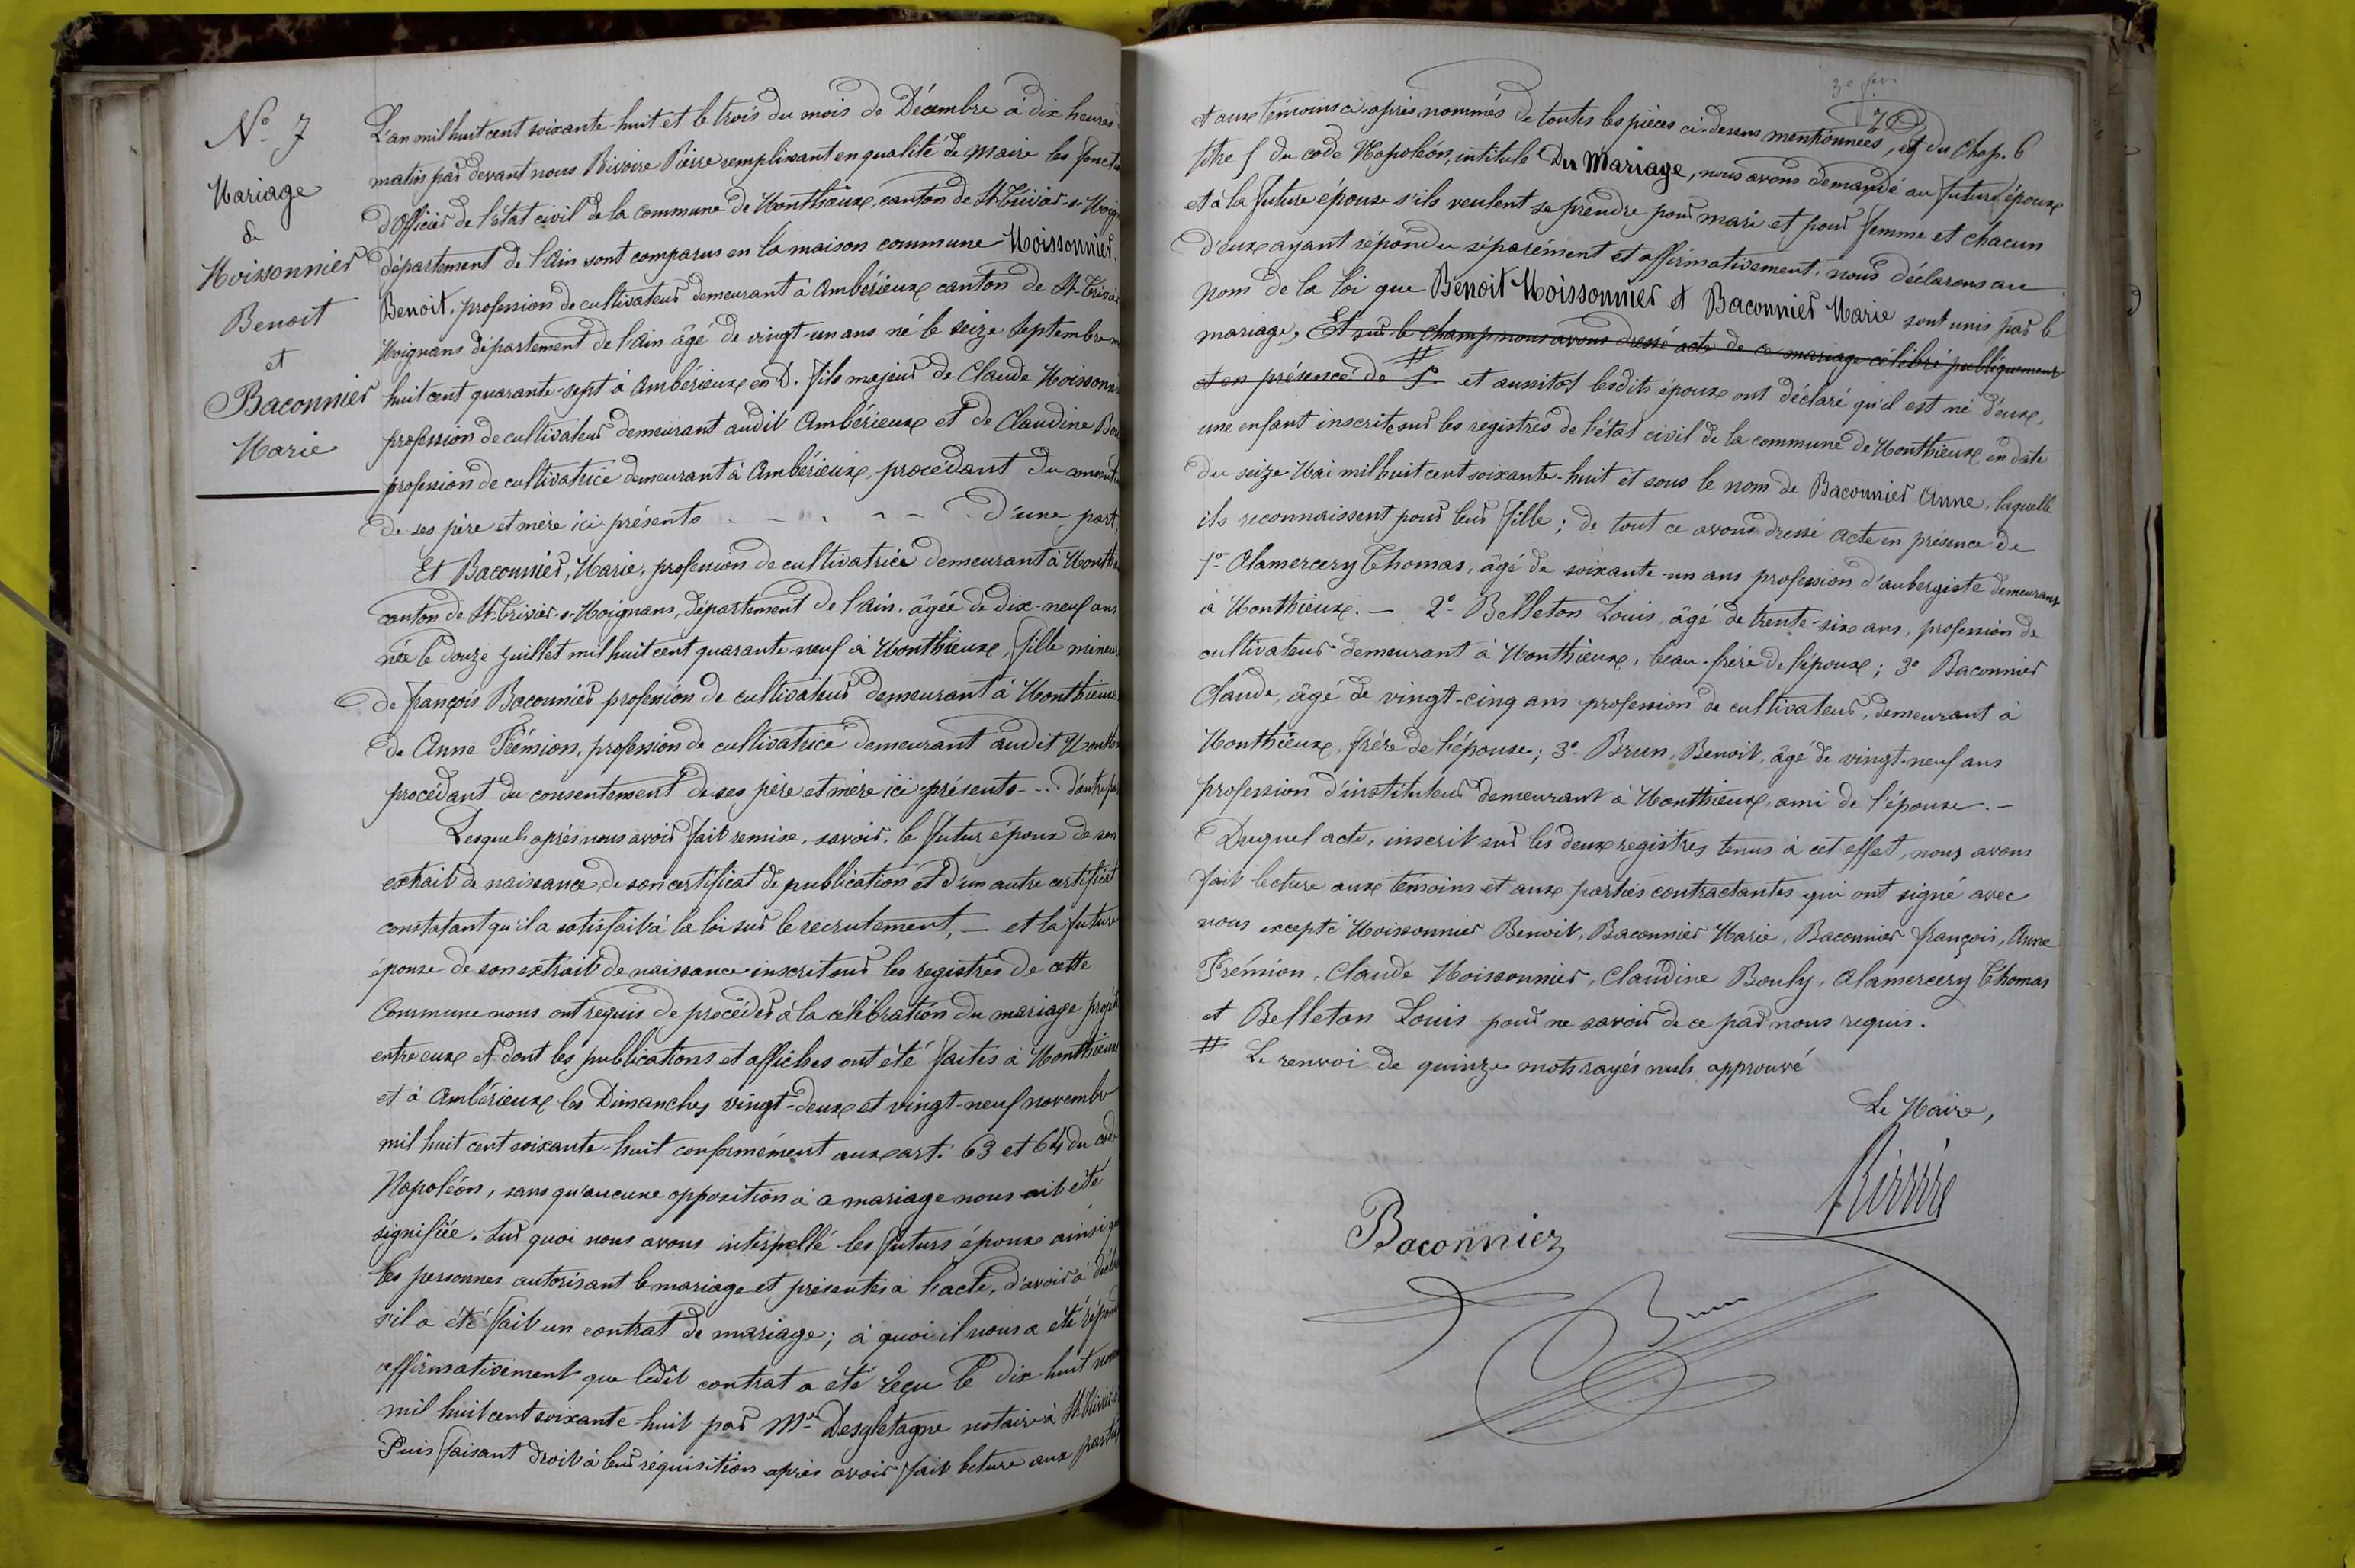 N° 7
Mariage
de
Moissonnier
Benoit
et
Baconnier
Marie
L'an mil huit cent soixante-huit et le trois du mois de Décembre à dix heures
matin par devant nous Rivoire Pierre remplissant en qualité de Maire les fonct
d'Officier de l'état civil de la commune de Monthieux, canton de St-Trivier-s-Moign
département de l'Ain sont comparus en la maison commune Moissonnier,
Benoit, profession de cultivateur demeurant à Ambérieux canton de St-Trivier
Moignans département de l'Ain âgé de vingt-un ans né le seize Septembre m
huit cent quarante-sept à Ambérieux en D. fils majeur de Claude Moissonni
profession de cultivateur demeurant audit Ambérieux et de Claudine Bou
profession de cultivatrice demeurant à Ambérieux, procédant du consent
de ses père et mère ici présents - - - - d'une part
Et Baconnier, Marie, profession de cultivatrice demeurant à Monthi
canton de St-Trivier-s-Moignans, département de l'Ain, âgée de dix-neuf ans
née le douze Juillet mil huit cent quarante-neuf à Monthieux, fille mineur
de François Baconnier profession de cultivateur demeurant à Monthieux
de Anne Frémion, profession de cultivatrice demeurant audit Monthi
procédant du consentement de ses père et mère ici présents - .. d'autre pa
Lesquels après nous avoir fait remise, savoir, le futur époux de son
extrait de naissance, de son certificat de publication et d'un autre certificat
constatant qu'il a satisfait à la loi sur le recrutement, — et la future
épouse de son extrait de naissance inscrit sur les registres de cette
Commune nous ont requis de procéder à la célébration du mariage projet
entre eux et dont les publications et affiches ont été faites à Monthieux
et à Ambérieux les Dimanches vingt-deux et vingt-neuf novembre
mil huit cent soixante-huit conformément aux art. 63 et 64 du cod
Napoléon, sans qu'aucune opposition à ce mariage nous ait été
signifiée. Sur quoi nous avons interpellé les futurs époux ainsi que
les personnes autorisant le mariage et présentes à l'acte, d'avoir à décla
s'il a été fait un contrat de mariage; à quoi il nous a été répond
affirmativement que ledit contrat a été reçu le dix-huit nov
mil huit cent soixante-huit par Me Desgletagne notaire à St Trivier
Puis faisant droit à leur réquisition après avoir fait lecture aux parties
7
et aux témoins ci-après nommés de toutes les pièces ci-dessus mentionnées, et du Chap. 6
titre 5 du code Napoléon, intitulé Du Mariage, nous avons demandé au futur époux
et à la future épouse s'ils veulent se prendre pour mari et pour femme et chacun
d'eux ayant répondu séparément et affirmativement, nous déclarons au
nom de la loi que Benoit Moissonnier et Baconnier Marie sont unis par le
mariage, Et sur le champ nous avons dressé acte de ce mariage célébré publiquement
et en présence de 1° # et aussitot lesdits époux ont déclaré qu'il est né d'eux,
une enfant inscrite sur les registres de l'état civil de la commune de Monthieux en date
du seize Mai mil huit cent soixante-huit et sous le nom de Baconnier Anne, laquelle
ils reconnaissent pour leur fille; de tout ce avons dressé acte en présence de
1° Alamercery Thomas, âgé de soixante-un ans profession d'aubergiste demeurant
à Monthieux. — 2° Belleton Louis, âgé de trente-six ans, profession de
cultivateur demeurant à Monthieux, beau-frère de l'époux; 3° Baconnier
Claude, âgé de vingt-cinq ans profession de cultivateur, demeurant à
Monthieux, frère de l'épouse; 3° Brun, Benoit, âgé de vingt-neuf ans
profession d'instituteur demeurant à Monthieux, ami de l'épouse. —
Duquel acte, inscrit sur les deux registres tenus à cet effet, nous avons
fait lecture aux témoins et aux parties contractantes qui ont signé avec
nous excepté Moissonnier Benoit, Baconnier Marie, Baconnier François, Anne
Frémion, Claude Moissonnier, Claudine Bouly, Alamercery Thomas
et Belleton Louis pour ne savoir de ce par nous requis.
# Le renvoi de quinze mots rayés nuls approuvé
Le Maire,
Rivoire
Baconnier
Brun